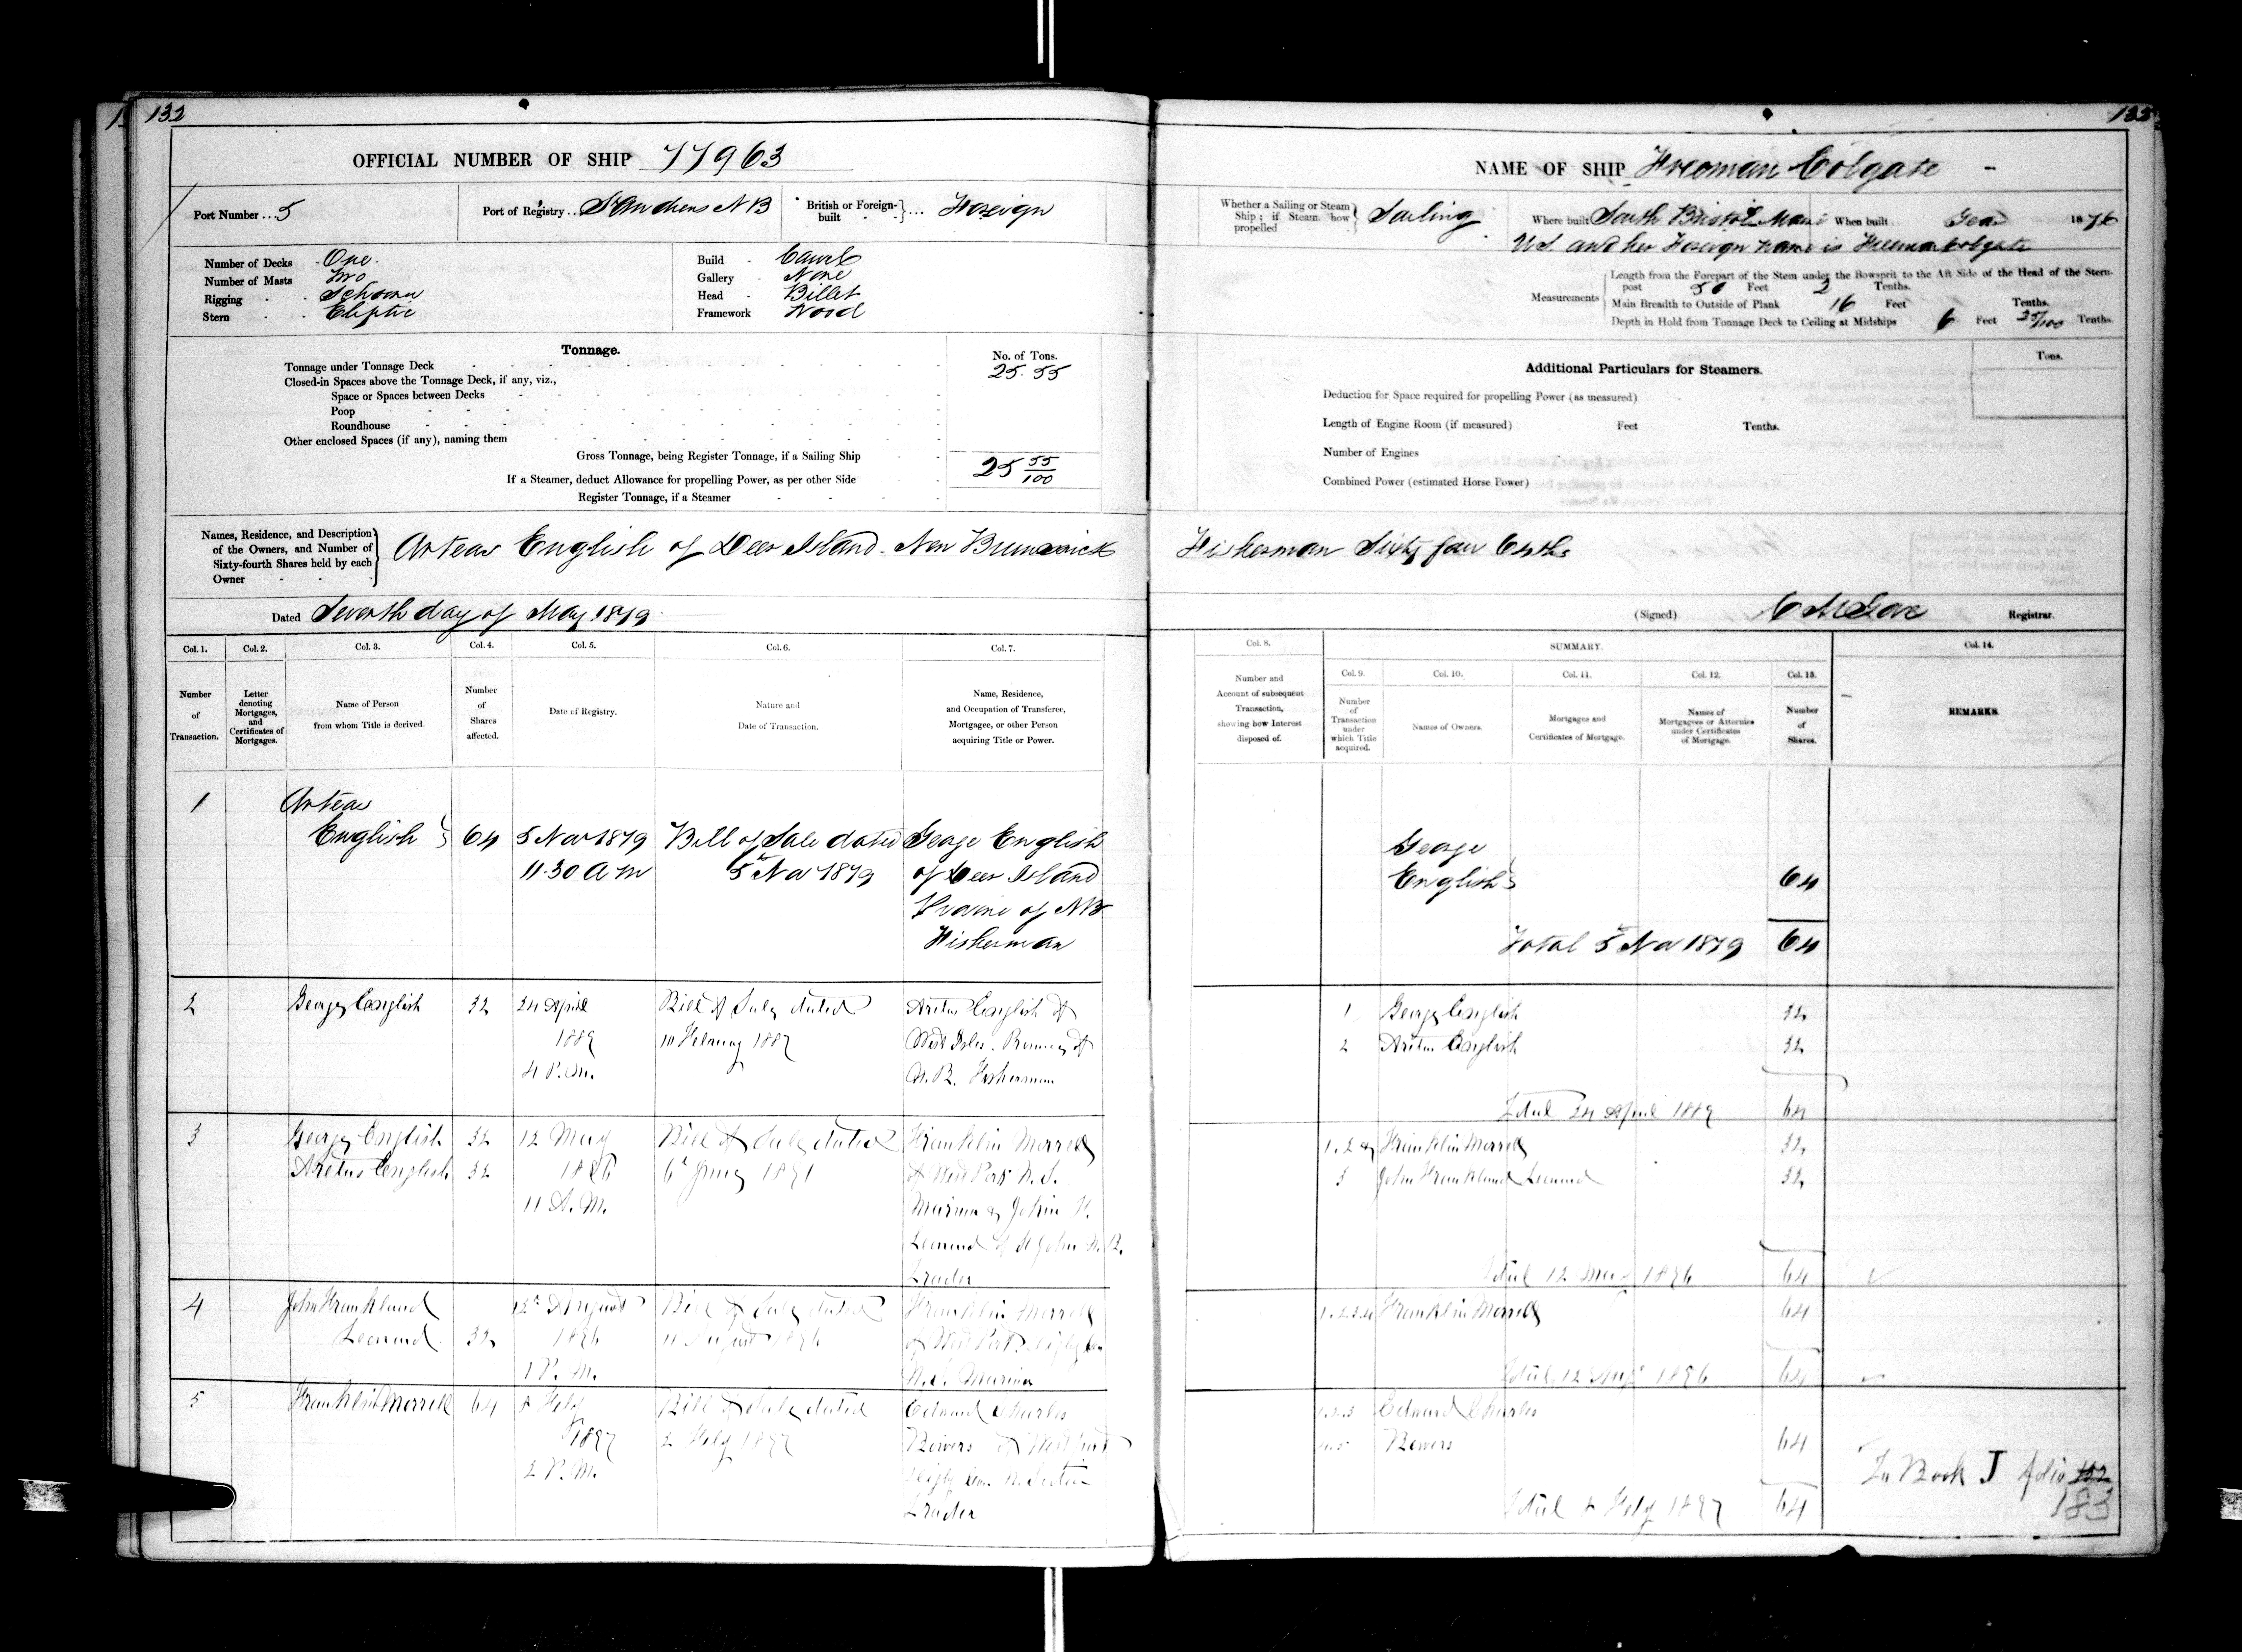 132
OFFICIAL NUMBER OF SHIP 77963
Port Number ... 5
Port of Registry .. St Andrews N B
British or Foreign-built ... Foreign
Number of Decks - One -
Number of Masts Two
Rigging - - Schooner
Stern - - Eliptic
Build - Carvel
Gallery - None
Head - Billet
Framework Wood
Tonnage.
No. of Tons.
Tonnage under Tonnage Deck 25.55
Closed-in Spaces above the Tonnage Deck, if any, viz.,
Space or Spaces between Decks
Poop
Roundhouse
Other enclosed Spaces (if any), naming them
Gross Tonnage, being Register Tonnage, if a Sailing Ship 25 55/100
If a Steamer, deduct Allowance for propelling Power, as per other Side
Register Tonnage, if a Steamer
Names, Residence, and Description of the Owners, and Number of Sixty-fourth Shares held by each Owner
Arteas English of Deer Island. New Brunswick
Dated Seventh day of May 1879
Col. 1. Col. 2. Col. 3. Col. 4. Col. 5. Col. 6. Col. 7.
Number of Transaction.
Letter denoting Mortgages, and Certificates of Mortgages.
Name of Person from whom Title is derived
Number of Shares affected.
Date of Registry.
Nature and Date of Transaction.
Name, Residence, and Occupation of Transferee, Mortgagee, or other Person acquiring Title or Power.
1 Arteas
English 64 5 Nov 1879 Bill of Sale dated George English
11.30 A M 5th Nov 1879 of Deer Island
of NB
Fisherman
2 George English 32 24 April Bill of Sale dated Aretus English of
1889 February 188
4 P.M. West Isles. of
N.B. Fisherman
3 George English 32 12 May Bill of Sale dated Franklin Morrell
Aretus English 32 1896 6th 1891 of West Port N.S.
11 A.M. Mariner & John F.
Leonard of St John N.B.
Trader
4 John Frankland 12th August Bill of Sale dated Franklin Morrell
Leonard 32 1896 11 August 1896 of West Port
1 P.M. N.S. Mariner
5 Franklin Morrell 64 8 Feby Bill of Sale dated Edward Charles
1897 2 Feby 1897 Bowers of Westport
2 P.M.
Trader
NAME OF SHIP Freeman Colgate -
Whether a Sailing or Steam Ship; if Steam how propelled Sailing
Where built South Bristol Maine
When built .. Year 1876
U.S. and her Foreign name is Freeman Colgate
Measurements
Length from the Forepart of the Stem under the Bowsprit to the Aft Side of the Head of the Stern-
post 50 Feet 2 Tenths.
Main Breadth to Outside of Plank 16 Feet Tenths.
Depth in Hold from Tonnage Deck to Ceiling at Midships 6 Feet 25/100 Tenths.
Additional Particulars for Steamers.
Tons.
Deduction for Space required for propelling Power (as measured)
Length of Engine Room (if measured) Feet Tenths.
Number of Engines
Combined Power (estimated Horse Power)
Fisherman Sixty four 64ths
(Signed) C M Gove Registrar.
Col. 8. SUMMARY. Col. 14.
Col. 9. Col. 10. Col. 11. Col. 12. Col. 13.
Number and Account of subsequent Transaction, showing how Interest disposed of.
Number of Transaction under which Title acquired.
Names of Owners.
Mortgages and Certificates of Mortgage.
Names of Mortgagees or Attornies under Certificates of Mortgage.
Number of Shares.
REMARKS.
George
English 64
Total 5th Nov 1879 64
1 George English 32
2 Aretus English 32
Total 24 April 1889 64
1.2 & Franklin Morrell 32
3 John Frankland Leonard 32
Total 12 May 1896 64
1.2.3.4 Franklin Morrell 64
Total 12 Augt 1896 64
1.2.3 Edward Charles
4.5 Bowers 64
Total 8 Feby 1897 64
To Book J folio 132
183